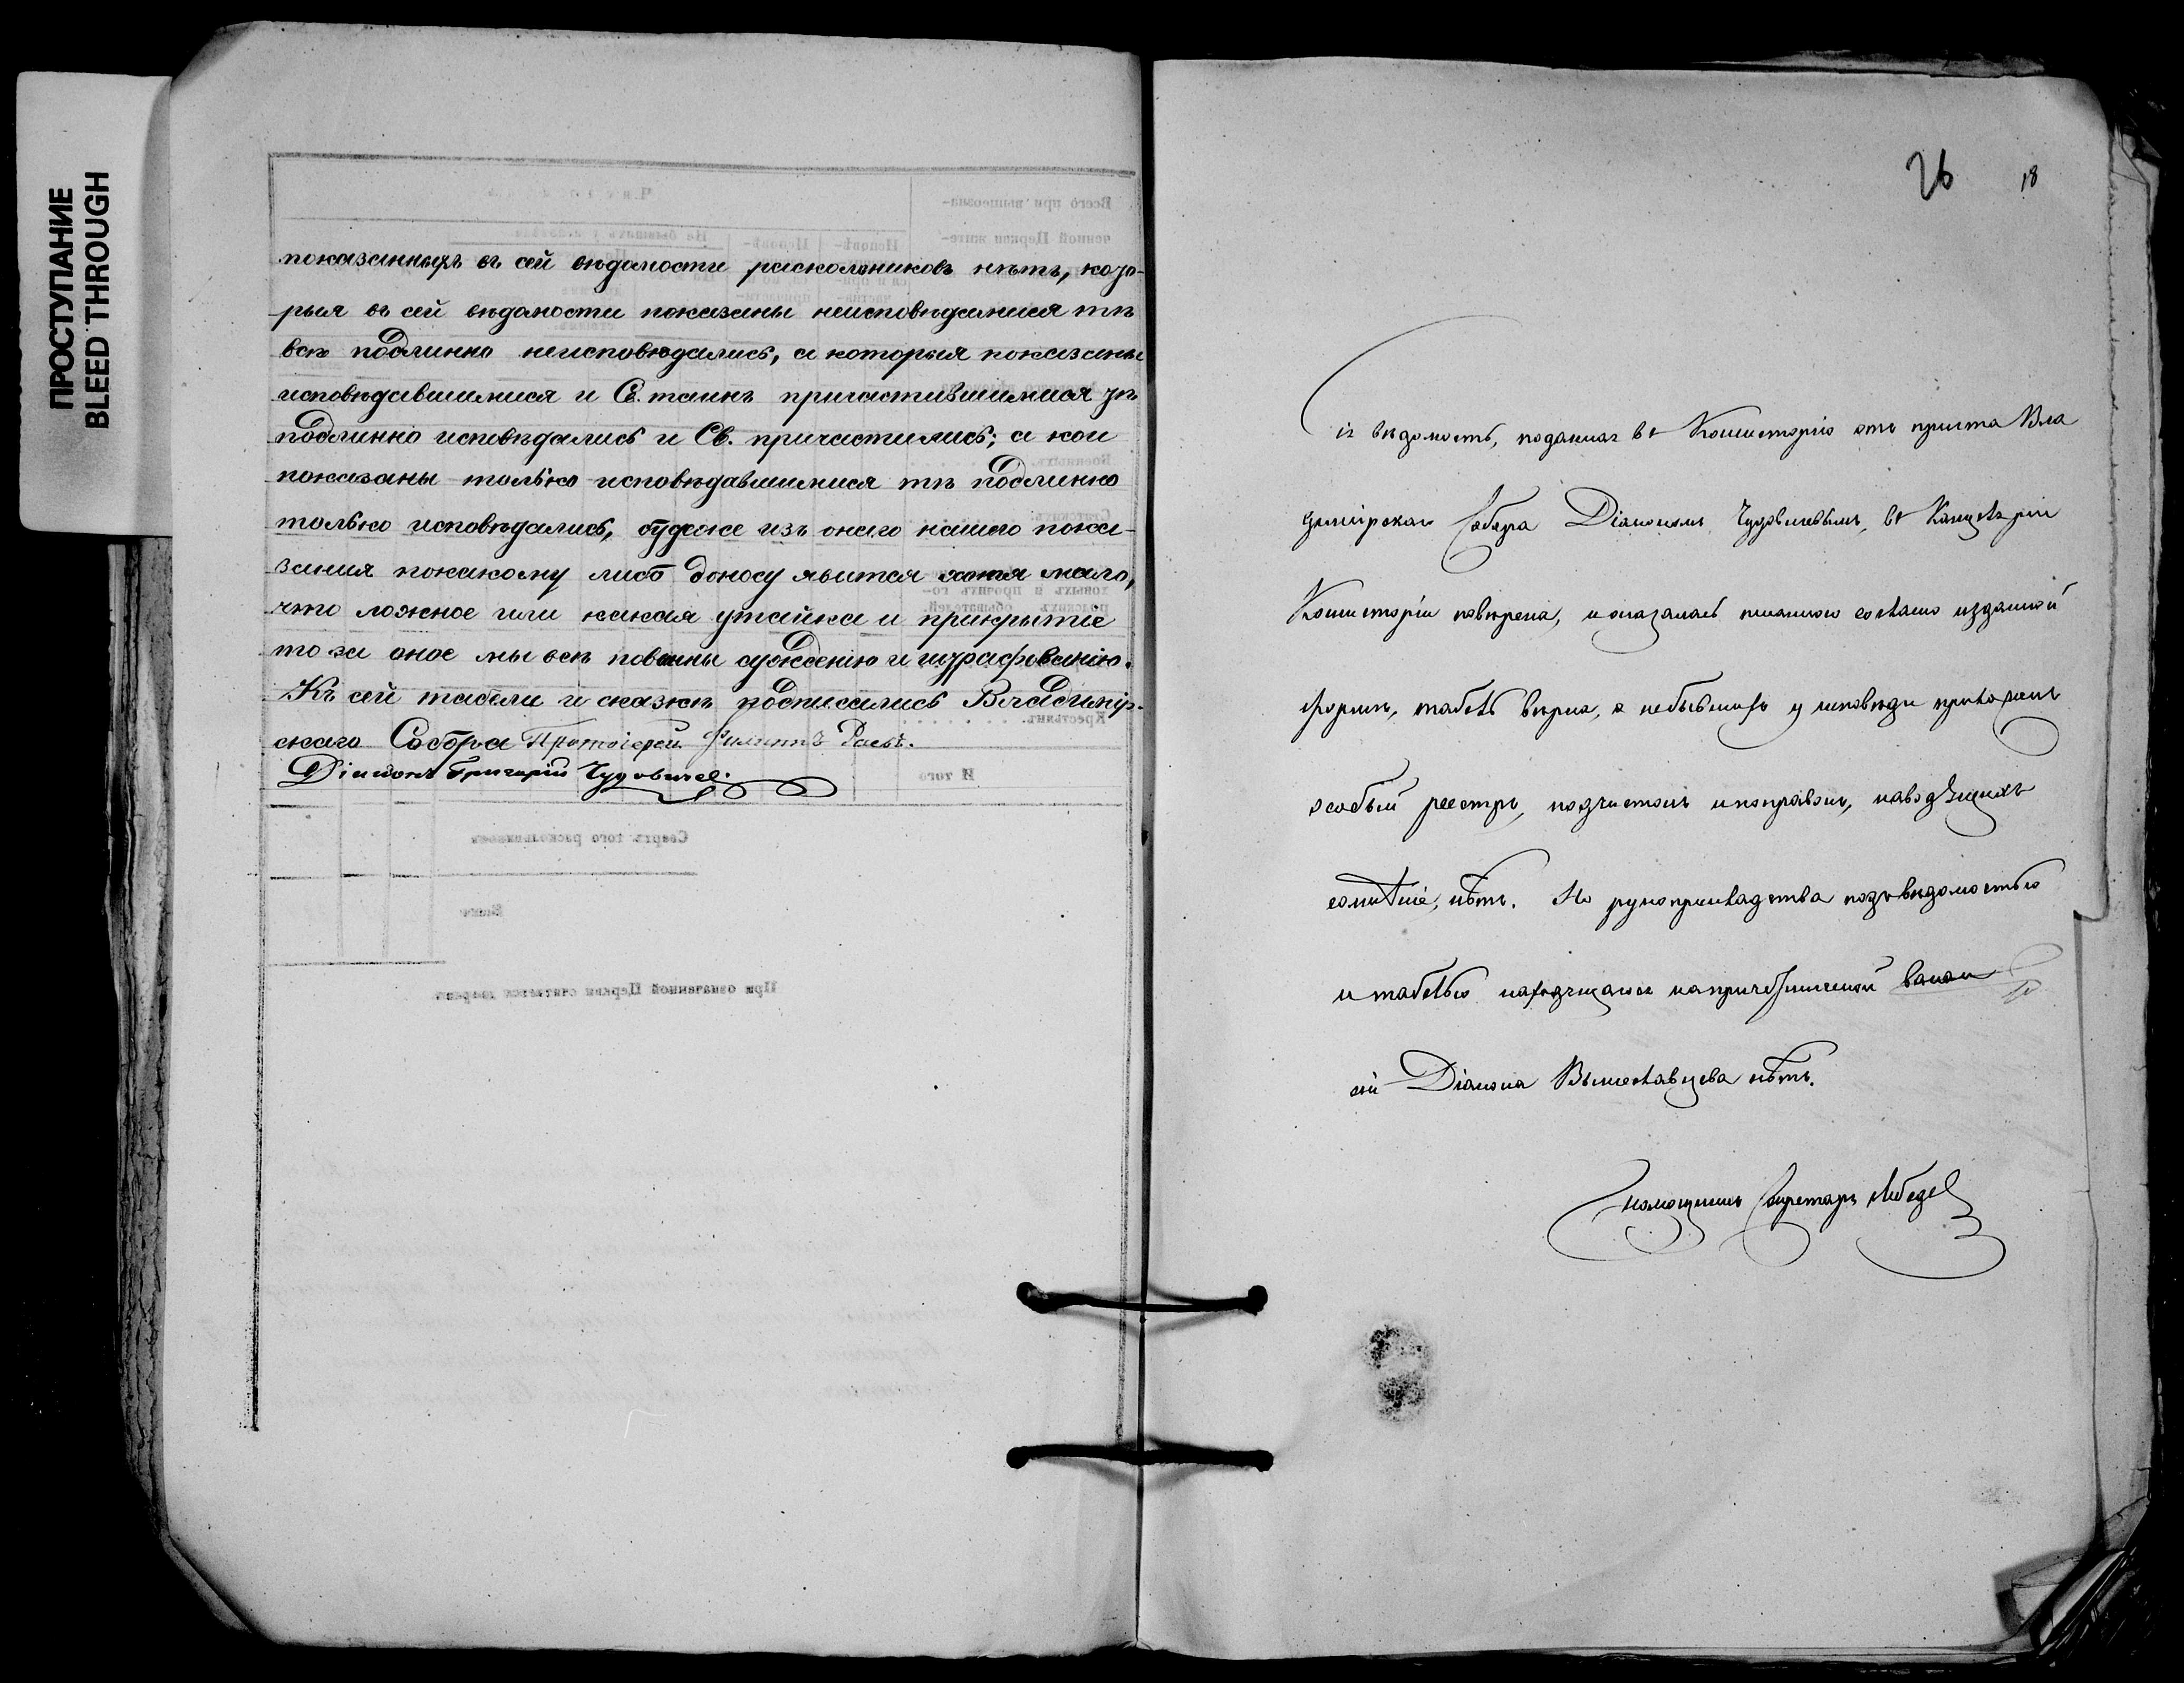 ПРОСТУПАНИЕ
BLEED THROUGH
показанныхъ въ сей вѣдомости раскольниковъ нѣтъ, кото-
рыя въ сей вѣдомости показаны неисповѣдамися тѣ
всѣ подлинно неисповѣдались, а которыя показаны
исповѣдавшимися и Св. таинъ причастившимися тѣ
подлинно исповѣдались и Св. причастились; а кои
показаны только исповѣдавшимися тѣ подлинно
только исповѣдались, будеже изъ онаго нашего пока-
занія покакому либо доносу явится хотя мало,
что ложное или какая утайка и прикрытіе
то за оное мы всѣ повинны сужденію и штрафованію.
Къ сей табели и сказкѣ подписались Владимір-
скаго Собора Протоіерей Филиппъ Раевъ.
Діаконъ Григорій Чудовичев.
26 18
Сія вѣдомость, поданная въ Консисторію отъ причта Вла
димірскаго Собора Діакономъ Чудовичевымъ, въ Канцеляріи
Консисторіи повѣрена, и оказалась писанною согласно изданной
формѣ, табель вѣрна, о небывшихъ у исповѣди приложенъ
особый реестръ, подчистокъ и поправокъ, наводящихъ
сомнѣніе, нѣтъ. Но рукоприкладства подъ вѣдомостью
и табелью находящагося на причетнической вакан
сіи Діакона Вышеславцева нѣтъ.
Помощникъ Секретаря Лебедев